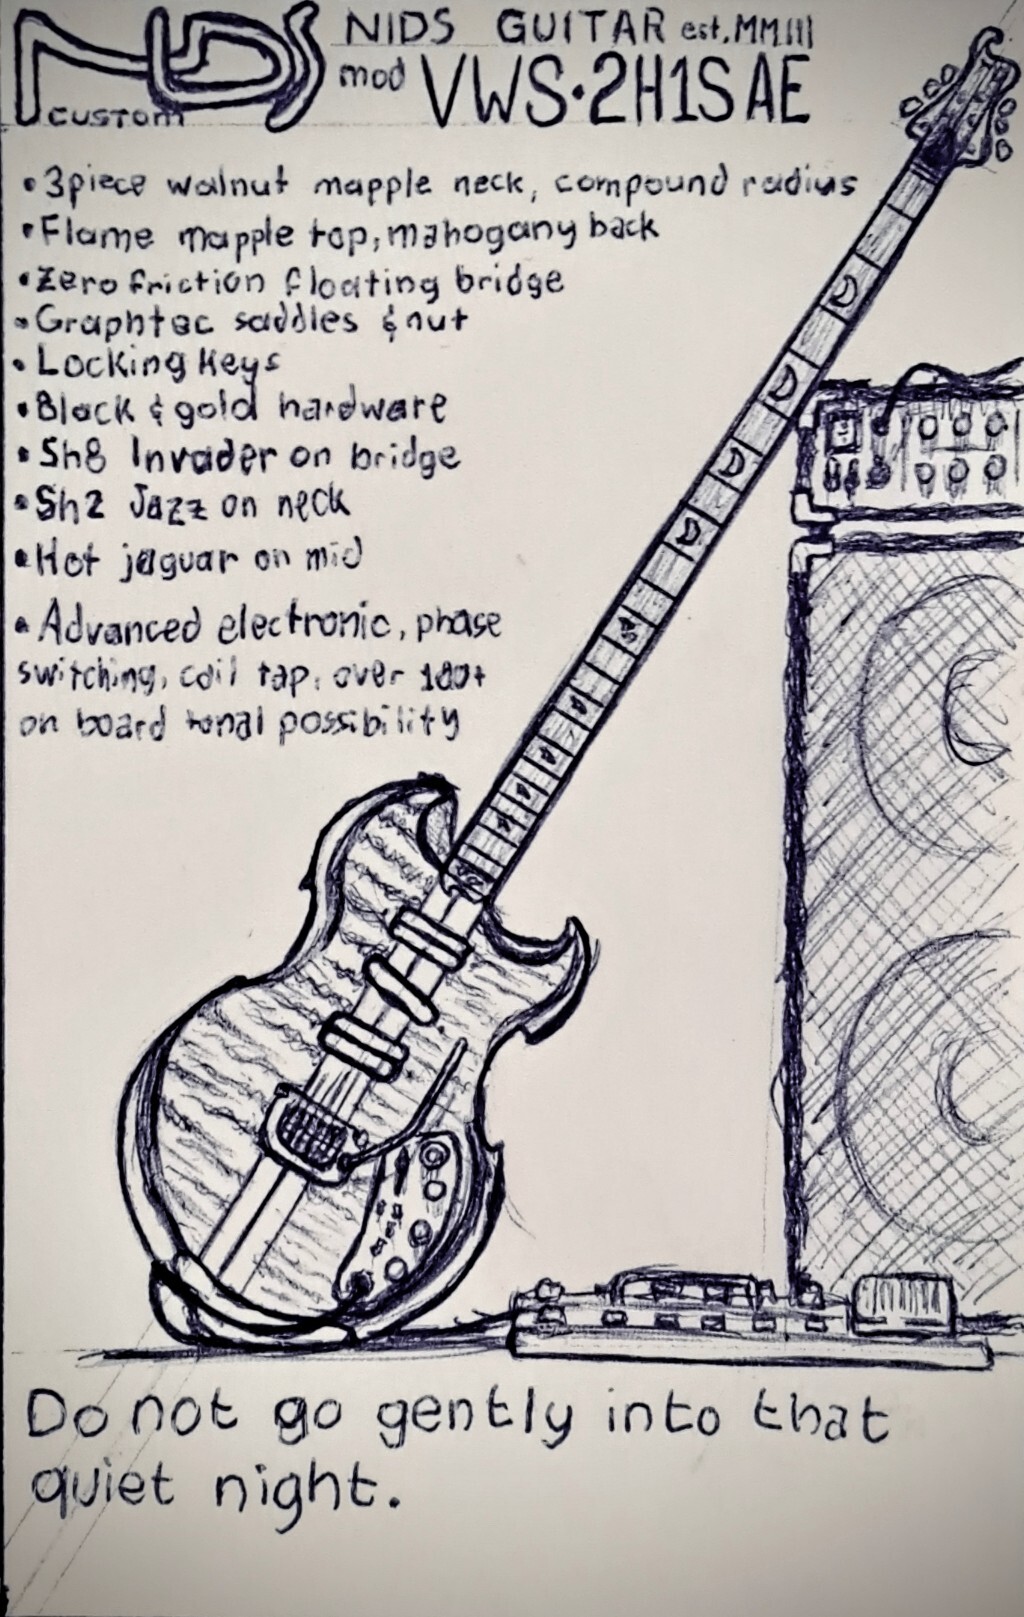 NDS
CUSTOM
NIDS GUITAR est. MMIII
mod VWS·2H1S AE
• 3piece walnut mapple neck, compound radius
• Flame mapple top, mahogany back
• Zero friction floating bridge
• Graphtec saddles & nut
• Locking Keys
• Black & gold hardware
• Sh8 Invader on bridge
• Sh2 Jazz on neck
• Hot jaguar on mid
• Advanced electronic, phase
switching, coil tap, over 100+
on board tonal possibility
Do not go gently into that
quiet night.